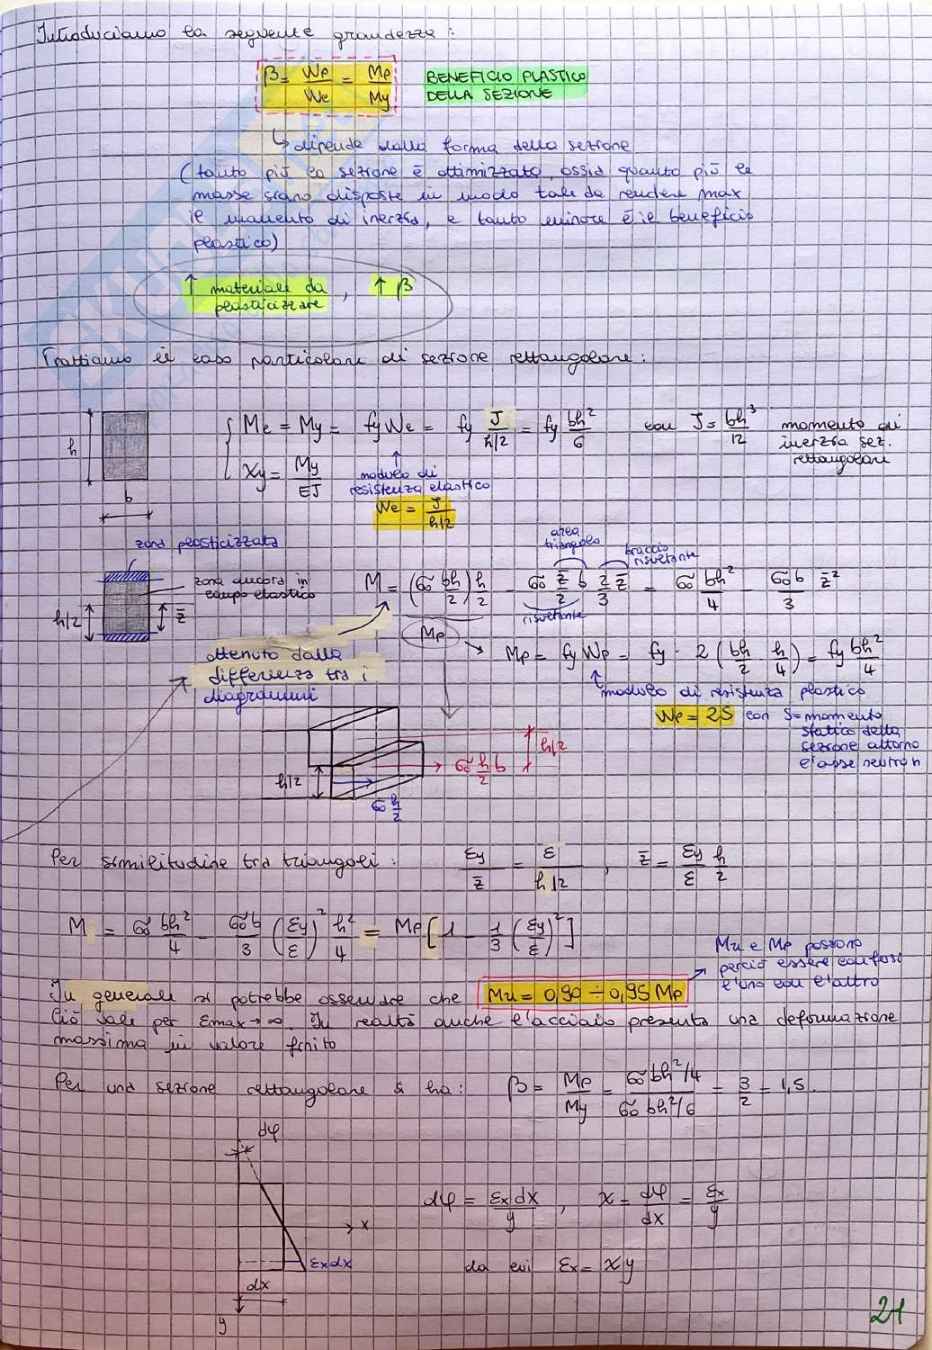 Introduciamo la seguente grandezza:
β = Wp/We = Mp/My BENEFICIO PLASTICO
DELLA SEZIONE
↳ dipende dalla forma della sezione
(tanto più la sezione è ottimizzata, ossia quanto più le
masse sono disposte in modo tale da rendere max
il momento di inerzia, e tanto minore è il beneficio
plastico)
↑ materiale da plasticizzare, ↑ β
Trattiamo il caso particolare di sezione rettangolare:
h
b
Me = My = fy We = fy J/(h/2) = fy bh²/6 con J = bh³/12 momento di
inerzia sez.
rettangolare
χy = My/EJ
modulo di
resistenza elastico
We = J/(h/2)
zona plasticizzata
zona ancora in
campo elastico
h/2
z̄
area
triangolo
braccio
risultante
M = (σ₀ bh/2) h/2 - σ₀ z̄/2 b 2/3 z̄ = σ₀ bh²/4 - σ₀b/3 z̄²
risultante
Mp
ottenuto dalla
differenza tra i
diagrammi
Mp = fy Wp = fy · 2 (bh/2 h/4) = fy bh²/4
modulo di resistenza plastico
Wp = 2S con S = momento
statico della
sezione attorno
l'asse neutro n
h/2
σ₀ h/2 b
h/2
σ₀ h/2
Per similitudine tra triangoli: εy/z̄ = ε/(h/2), z̄ = εy/ε h/2
M = σ₀ bh²/4 - σ₀b/3 (εy/ε)² h²/4 = Mp[1 - 1/3 (εy/ε)²]
Mu e Mp possono
perciò essere confusi
l'uno con l'altro
In generale si potrebbe osservare che Mu = 0,90 ÷ 0,95 Mp
Ciò vale per εmax → ∞. In realtà anche l'acciaio presenta una deformazione
massima in valore finito
Per una sezione rettangolare si ha: β = Mp/My = (σ₀ bh²/4)/(σ₀ bh²/6) = 3/2 = 1,5.
dφ
dφ = εx dx/y, χ = dφ/dx = εx/y
x
εx dx
da cui εx = χy
dx
y
21